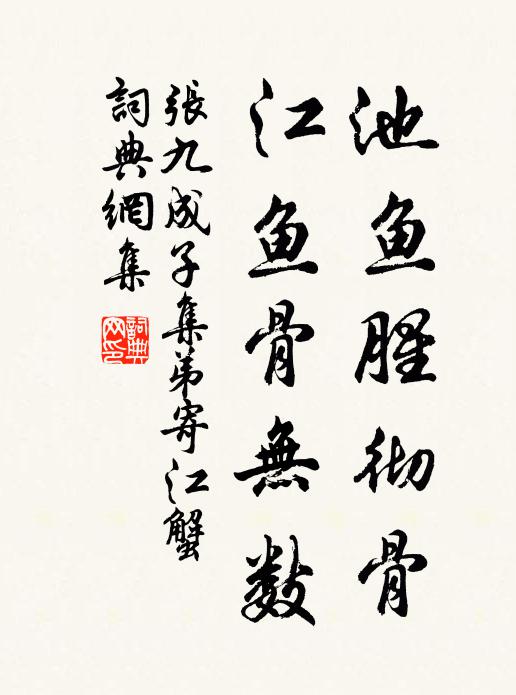 池鱼腥彻骨
江鱼骨無数
張九成子集弟寄江蟹
詞典網集
詞典網印